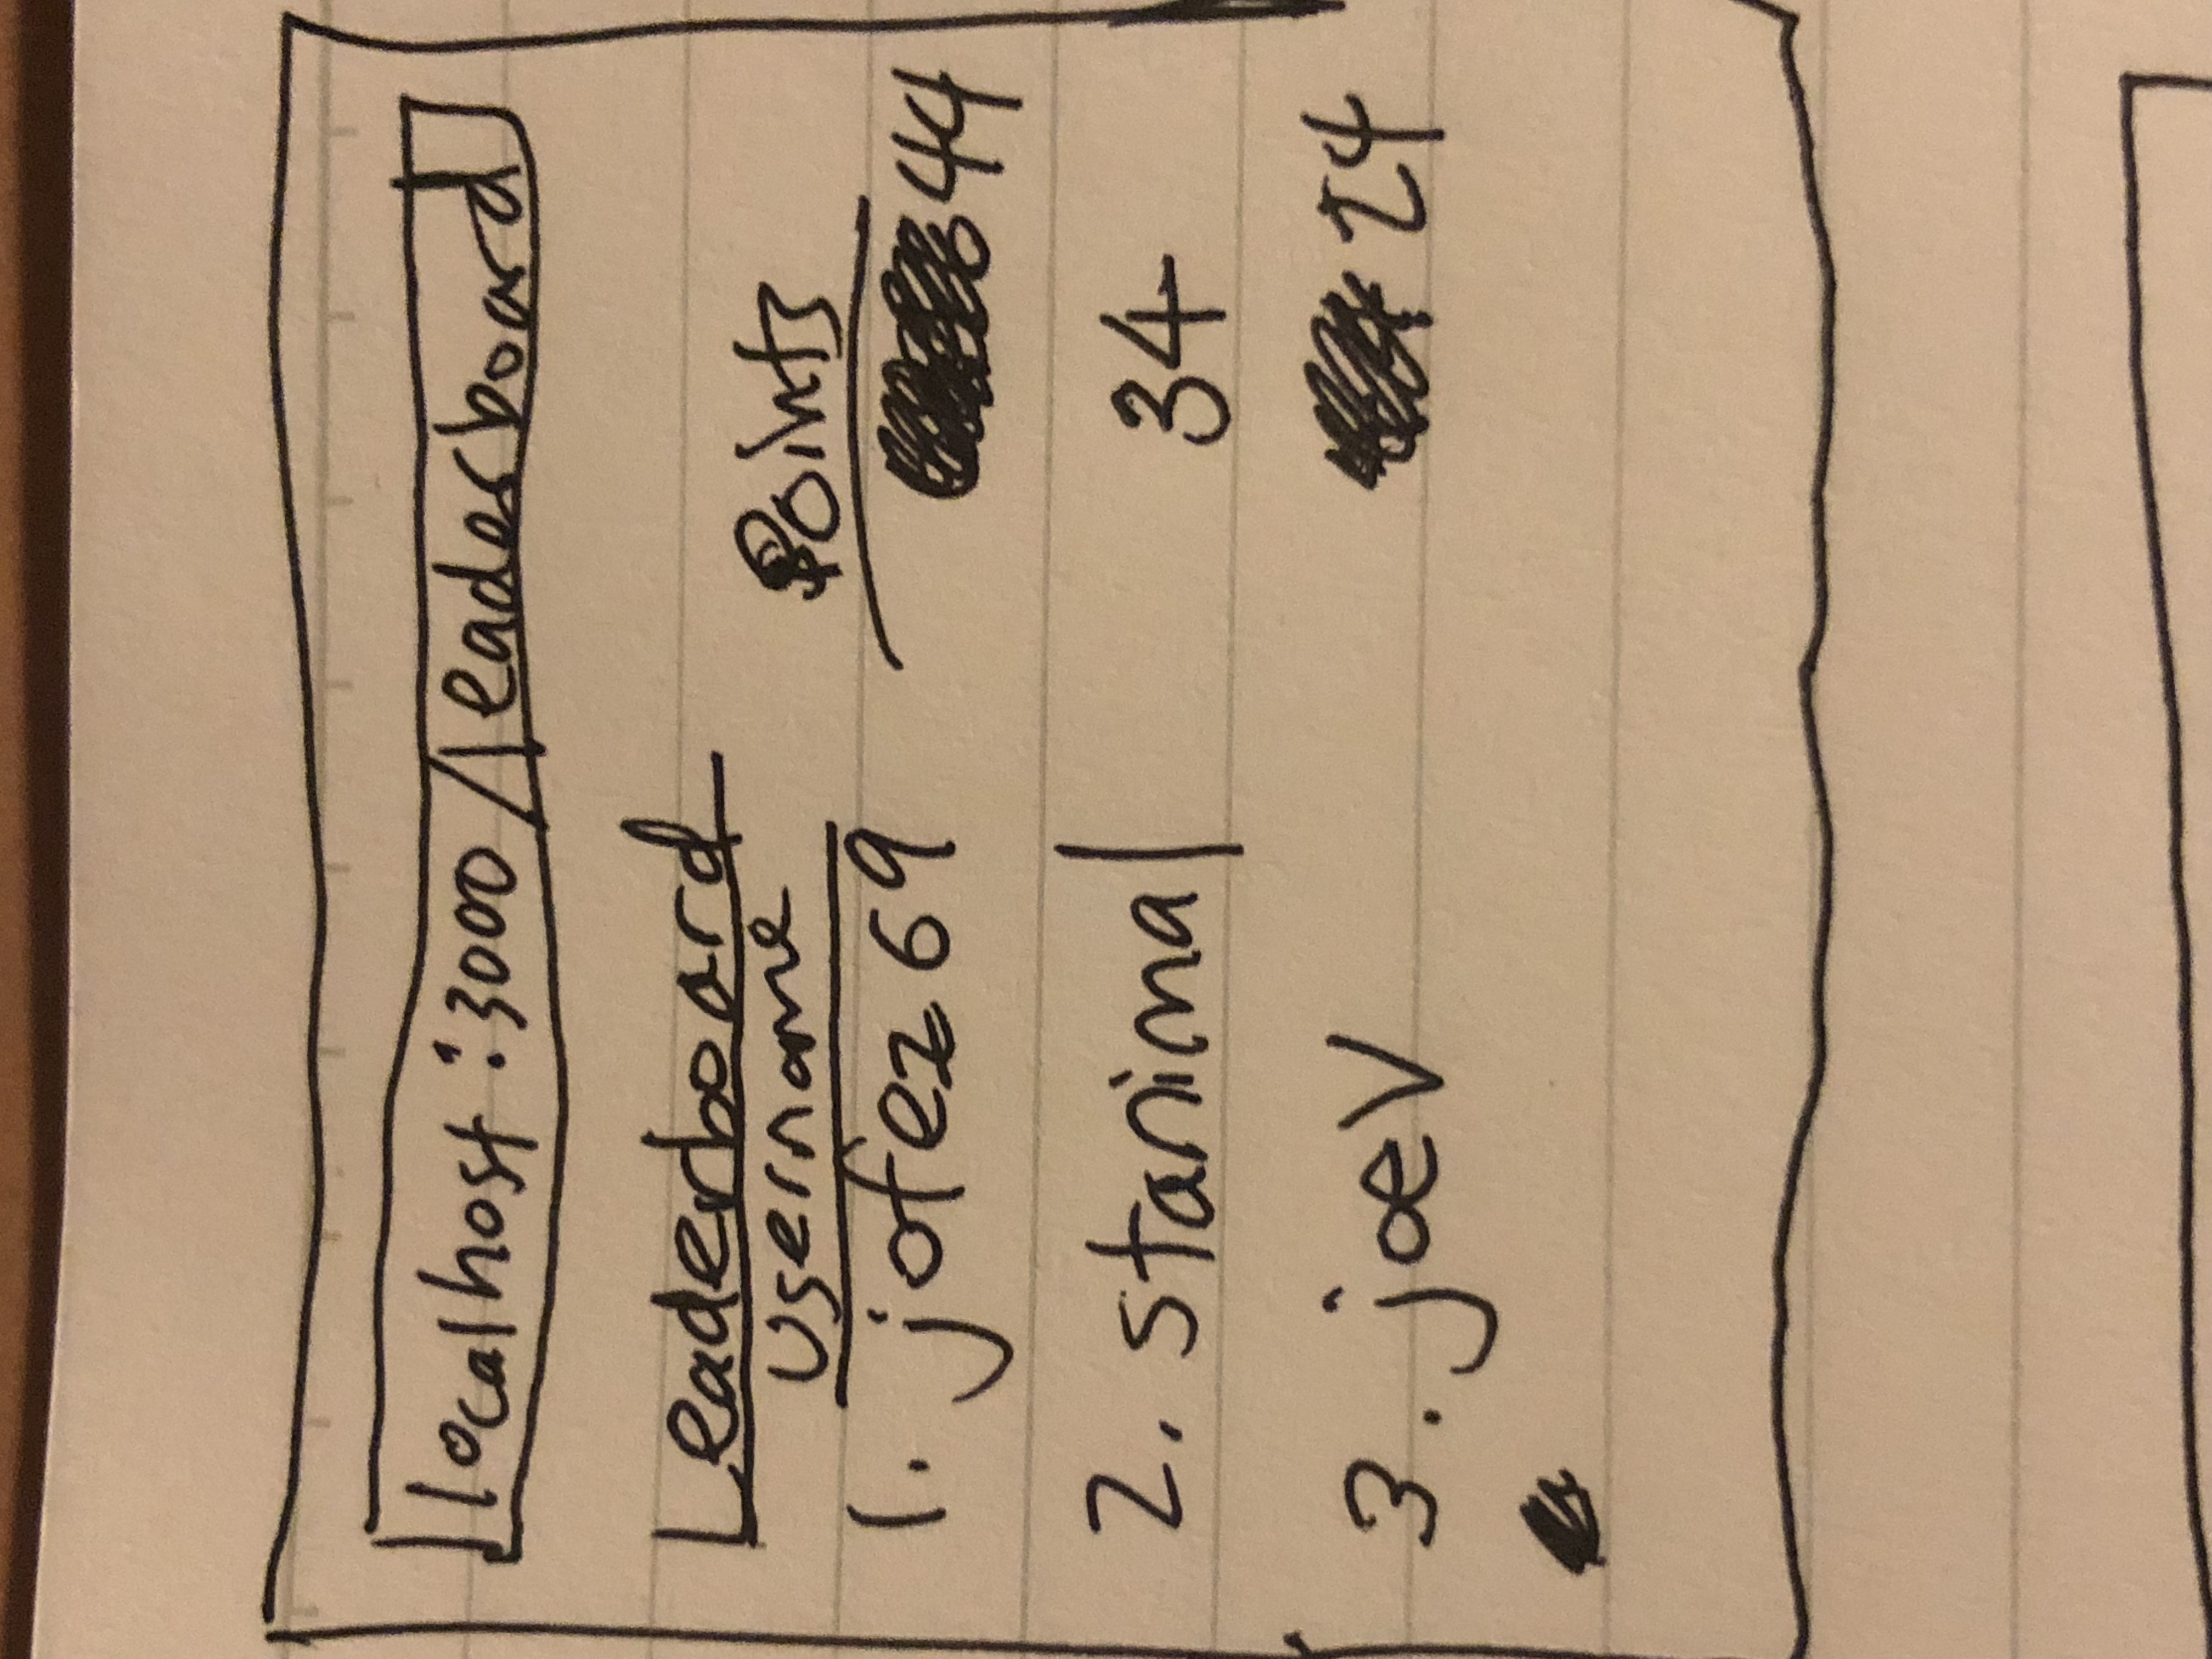 localhost:3000/leaderboard
Leaderboard
username Points
1. jofez69 44
2. stanimal 34
3. joeV 24